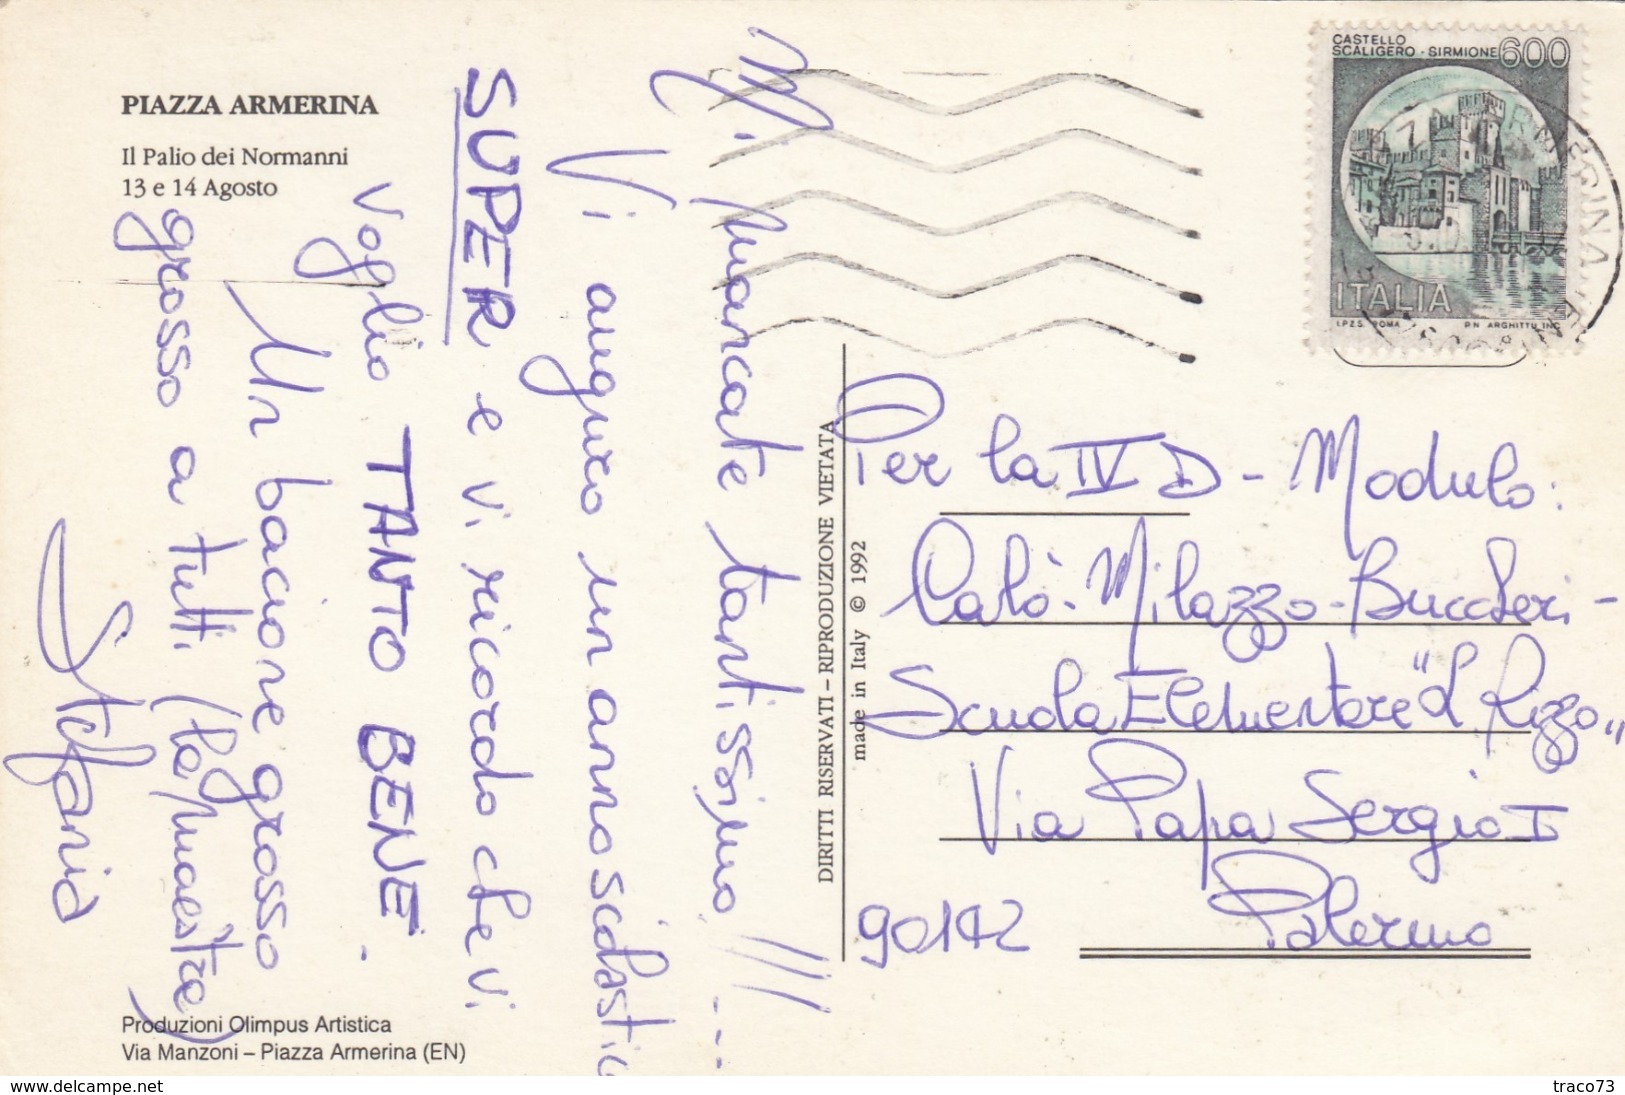 PIAZZA ARMERINA
Il Palio dei Normanni
13 e 14 Agosto
Mi mancate tantissimo!!! ...
Vi auguro un anno scolastico
SUPER e vi ricordo che vi
voglio TANTO BENE.
Un bacione grosso
grosso a tutti (te maestre)
Stefania
Produzioni Olimpus Artistica
Via Manzoni – Piazza Armerina (EN)
DIRITTI RISERVATI – RIPRODUZIONE VIETATA
made in Italy © 1992
CASTELLO
SCALIGERO - SIRMIONE 600
ITALIA
I.P.Z.S. ROMA P.N. ARGHITTU INC.
Per la IV D - Modulo:
Calò - Milazzo - Buccheri -
Scuola Elementare "L. Rizzo"
Via Papa Sergio I
90142 Palermo
www.delcampe.net
traco73